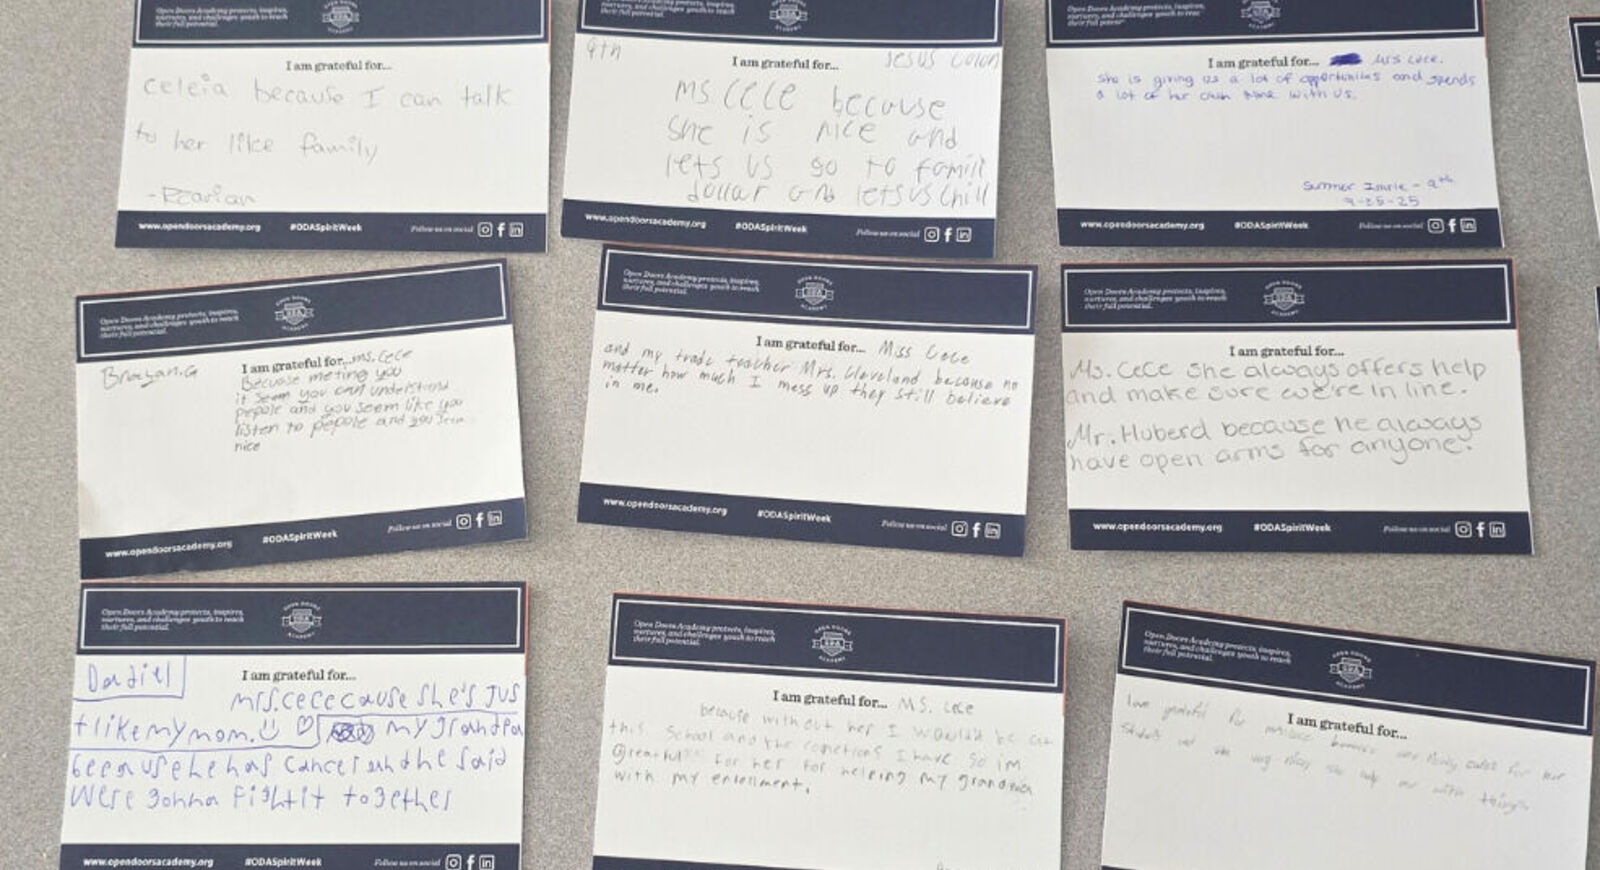 Open Doors Academy protects, inspires,
nurtures, and challenges youth to reach
their full potential.
I am grateful for...
celeia because I can talk
to her like family
www.opendoorsacademy.org #ODASpiritWeek Follow us on social
9th Jesus Colon
I am grateful for...
Ms. Cece because
she is nice and
lets us go to famill
dollar and lets us chill
www.opendoorsacademy.org #ODASpiritWeek Follow us on social
Open Doors Academy protects, inspires,
nurtures, and challenges youth to reach
their full potential
I am grateful for... Mrs Cece.
she is giving us a lot of opportunities and spends
a lot of her own time with us.
Summer Imrie - 9th
9-25-25
www.opendoorsacademy.org #ODASpiritWeek Follow us on social
Open Doors Academy protects, inspires,
nurtures, and challenges youth to reach
their full potential.
OPEN DOORS
ODA
ACADEMY
Brayan.G
I am grateful for... ms. Cece
Becuase meting you
it seem you can understand
pepole and you seem like you
listen to pepole and you seem
nice
www.opendoorsacademy.org #ODASpiritWeek Follow us on social
Open Doors Academy protects, inspires,
nurtures, and challenges youth to reach
their full potential.
OPEN DOORS
ODA
ACADEMY
I am grateful for... Miss Cece
and my trade teacher Mrs. Cleveland because no
matter how much I mess up they still believe
in me.
www.opendoorsacademy.org #ODASpiritWeek Follow us on social
Open Doors Academy protects, inspires,
nurtures, and challenges youth to reach
their full potential.
OPEN DOORS
ODA
ACADEMY
I am grateful for...
Ms. Cece she always offers help
and make sure we're in line.
Mr. Huberd because he always
have open arms for anyone.
www.opendoorsacademy.org #ODASpiritWeek Follow us on social
Open Doors Academy protects, inspires,
nurtures, and challenges youth to reach
their full potential.
OPEN DOORS
ODA
ACADEMY
Dadiel
I am grateful for...
mrs.cece cause she's jus
t like my mom. my grandpa
because he has cancer and he said
were gonna fight it together
www.opendoorsacademy.org #ODASpiritWeek Follow us on social
Open Doors Academy protects, inspires,
nurtures, and challenges youth to reach
their full potential.
OPEN DOORS
ODA
ACADEMY
I am grateful for... MS. Cece
because without her I wouldn't be at
this school and the conections I have so im
greatful for her for helping my grandma
with my enrollment.
Open Doors Academy protects, inspires,
nurtures, and challenges youth to reach
their full potential.
OPEN DOORS
ODA
ACADEMY
I am grateful for...
I am grateful for because really cares for her
very nicely she help me with things